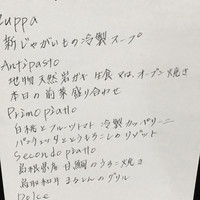 Zuppa
新じゃがいもの冷製スープ
Antipasto
地物天然岩ガキ 生食 又は、オーブン焼き
本日の前菜盛り合わせ
Primo piatto
白桃とフルーツトマト 冷製カッペリーニ
パンチェッタととうもろこしのリゾット
Secondo piatto
島根県産 目鯛のうろこ焼き
鳥取和牛 のグリル
Dolce